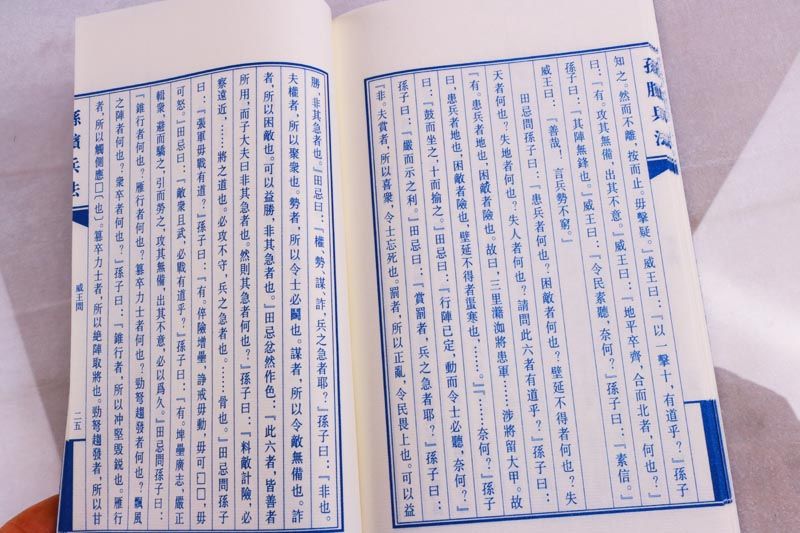 孫臏兵法
知之。然而不離，按而止。毋擊疑。』威王曰：『以一擊十，有道乎？』孫子
曰：『有。攻其無備，出其不意。』威王曰：『地平卒齊，合而北者，何也？』
孫子曰：『其陣無鋒也。』威王曰：『令民素聽，奈何？』孫子曰：『素信。』
威王曰：『善哉！言兵勢不窮。』
田忌問孫子曰：『患兵者何也？困敵者何也？壁延不得者何也？失
天者何也？失地者何也？失人者何也？請問此六者有道乎？』孫子曰：
『有。患兵者地也，困敵者險也。故曰，三里瀦洳將患軍……涉將留大甲。故
曰，患兵者地也，困敵者險也，壁延不得者蜸寒也，……。』『……奈何？』孫子
曰：『鼓而坐之，十而揄之。』田忌曰：『行陣已定，動而令士必聽，奈何？』
孫子曰：『嚴而示之利。』田忌曰：『賞罰者，兵之急者耶？』孫子曰：
『非。夫賞者，所以喜衆，令士忘死也。罰者，所以正亂，令民畏上也。可以益
勝，非其急者也。』田忌曰：『權、勢、謀、詐，兵之急者耶？』孫子曰：『非也。
夫權者，所以聚衆也。勢者，所以令士必鬭也。謀者，所以令敵無備也。詐
者，所以困敵也。可以益勝，非其急者也。』田忌忿然作色：『此六者，皆善者
所用，而子大夫曰非其急者也。然則其急者何也？』孫子曰：『料敵計險，必
察遠近，……將之道也。必攻不守，兵之急者也。……骨也。』田忌問孫子
曰：『張軍毋戰有道？』孫子曰：『有。倅險增壘，諍戒毋動，毋可□□，毋
可怒。』田忌曰：『敵衆且武，必戰有道乎？』孫子曰：『有。埤壘廣志，嚴正
輯衆，避而驕之，引而勞之，攻其無備，出其不意，必以爲久。』田忌問孫子曰：
『錐行者何也？雁行者何也？篡卒力士者何也？勁弩趨發者何也？飄風
之陣者何也？衆卒者何也？』孫子曰：『錐行者，所以冲堅毀鋭也。雁行
者，所以觸側應□〔也〕。篡卒力士者，所以絶陣取將也。勁弩趨發者，所以甘
孫臏兵法
威王問
二五